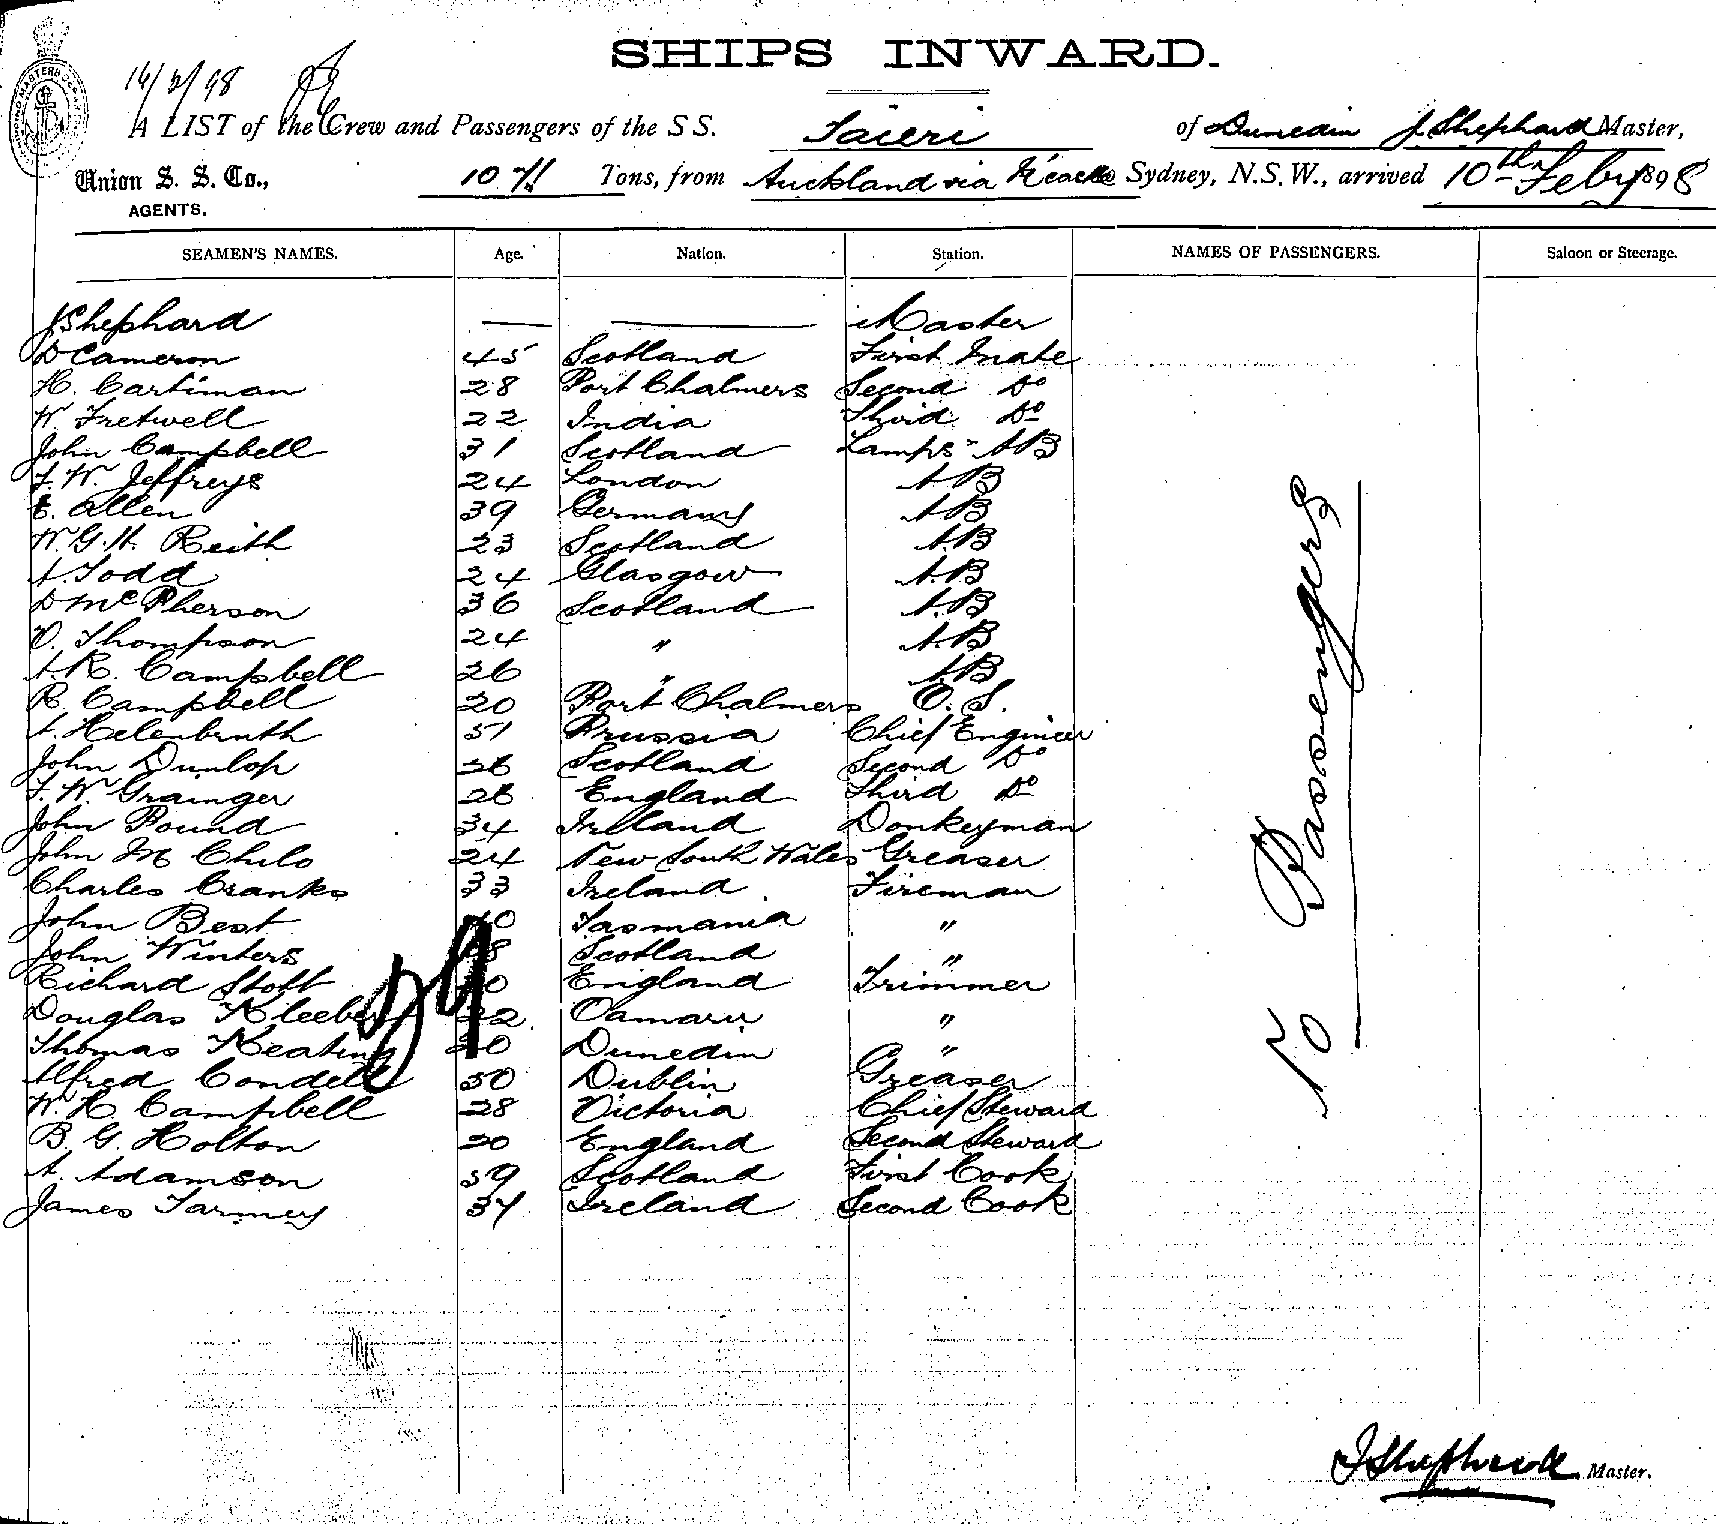 SHIPS INWARD.
14/2/98
A LIST of the Crew and Passengers of the S S. Taieri of Dunedin J. Shephard Master,
Union S. S. Co., 1071 Tons, from Auckland via Sydney, N.S.W., arrived 10th Feby 1898
AGENTS.
SEAMEN'S NAMES. Age. Nation. Station. NAMES OF PASSENGERS. Saloon or Steerage.
J Shephard — — Master
D Cameron 45 Scotland First Mate
H. Cartiman 28 Port Chalmers Second Do
W. Fretwell 22 India Third Do
John Campbell 31 Scotland Lamps - AB
F. W. Jeffreys 24 London AB
E. Allen 39 Germany AB
W. G. H. Reith 23 Scotland A.B
A. Todd 24 Glasgow A.B
D McPherson 36 Scotland A.B
V. Thompson 24 " A.B
A. R. Campbell 26 " AB
R. Campbell 20 Port Chalmers O. S.
A. Helenbruth 51 Prussia Chief Engineer
John Dunlop 36 Scotland Second Do
F. W. Grainger 26 England Third Do
John Pound 34 Ireland Donkeyman
John M Chilo 24 New South Wales Greaser
Charles Cranks 33 Ireland Fireman
John Best 40 Tasmania "
John Winters Scotland "
Richard Stott England Trimmer
Douglas Kleeberg 22 Oamaru "
Thomas Keating Dunedin "
Alfred Condell 50 Dublin Greaser
W. H. Campbell 28 Victoria Chief Steward
B. G. Holton 30 England Second Steward
A. Adamson 39 Scotland First Cook
James Tarmey 34 Ireland Second Cook
29
No Passengers
J Shephard Master.